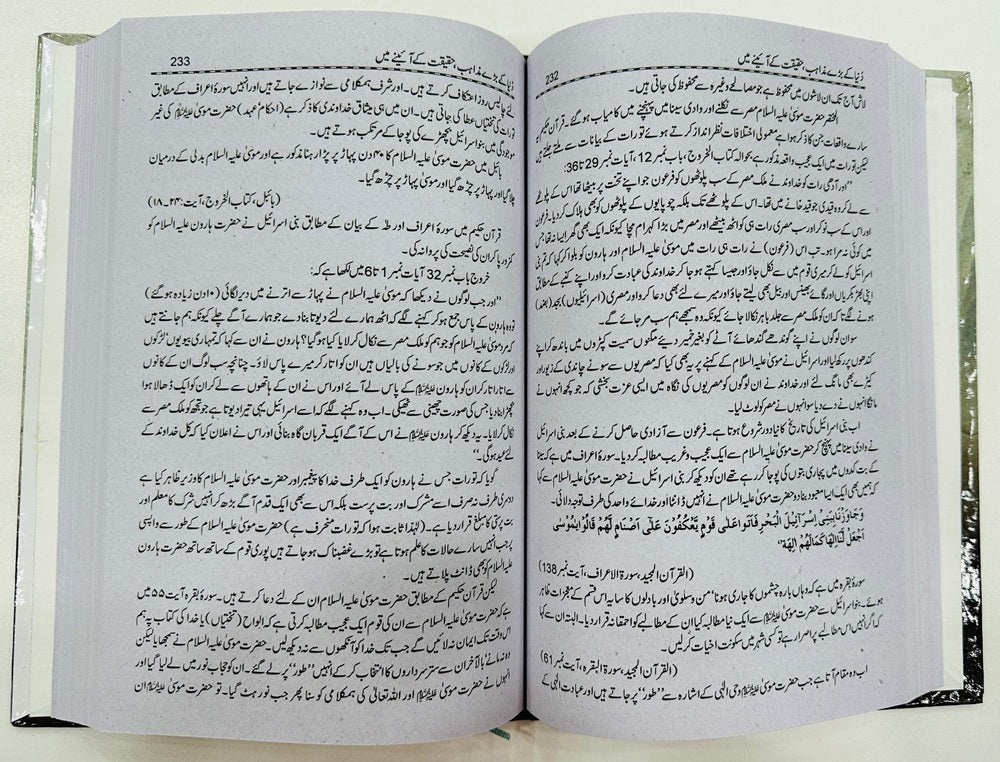 232 دُنیا کے بڑے مذاہب، حقیقت کے آئینے میں
لاش آج تک ان لاشوں میں محفوظ ہے جو مصالحے وغیرہ سے محفوظ کی جاتی ہیں۔
المختصر حضرت موسیٰ علیہ السلام مصر سے نکلنے اور وادی سینا میں پہنچنے میں کامیاب ہو گئے۔ قرآن حکیم
سارے واقعات جن کا ذکر ہوا ہے معمولی اختلافات نظر انداز کرتے ہوئے تورات کے بیانات سے ملتے جلتے ہیں
لیکن تورات میں ایک عجیب واقعہ مذکور ہے بحوالہ کتاب الخروج، باب نمبر 12، آیات نمبر 29 تا 36:
”اور آدھی رات کو خداوند نے ملک مصر کے سب پلوٹھوں کو فرعون جو اپنے تخت پر بیٹھا تھا اس کے پلوٹھے
سے لے کر وہ قیدی جو قید خانے میں تھا۔ اس کے پلوٹھے تک بلکہ چوپایوں کے پلوٹھوں کو بھی ہلاک کر دیا۔ فرعون
اور اس کے سب نوکر اور سب مصری رات ہی کو اٹھ بیٹھے اور مصر میں بڑا کہرام مچا کیونکہ ایک بھی گھر ایسا نہ تھا جس
میں کوئی نہ مرا ہو۔ تب اس (فرعون) نے رات ہی رات میں موسیٰ علیہ السلام اور ہارون کو بلوا کر کہا کہ تم بنی
اسرائیل کو لے کر میری قوم میں سے نکل جاؤ اور جیسا کہتے ہو جا کر خداوند کی عبادت کرو اور اپنے کہنے کے مطابق
اپنی بھیڑ بکریاں اور گائے بھینس اور بیل بھی لیتے جاؤ اور میرے لئے بھی دعا کرو اور مصری (اسرائیلیوں) بجد (بضد)
ہونے لگے تا کہ ان کو ملک مصر سے جلد باہر نکالا جائے کیونکہ وہ سمجھے ہم سب مر جائے گے۔
سو ان لوگوں نے اپنے گوندھے گندھائے آٹے کو بغیر خمیر دیئے مٹکوں سمیت کپڑوں میں باندھ کر اپنے
کندھوں پر رکھ لیا اور اسرائیل نے موسیٰ علیہ السلام کے کہنے پر یہ بھی کیا کہ مصریوں سے سونے چاندی کے زیور اور
کپڑے بھی مانگ لئے اور خداوند نے ان لوگوں کو مصریوں کی نگاہ میں ایسی عزت بخشی کہ جو کچھ انہوں نے
مانگا انہوں نے دے دیا سو انہوں نے مصر کو لوٹ لیا۔
اب بنی اسرائیل کی تاریخ کا نیا دور شروع ہوتا ہے۔ فرعون سے آزادی حاصل کرنے کے بعد بنی اسرائیل
نے وادی سینا میں پہنچ کر حضرت موسیٰ علیہ السلام سے ایک عجیب و غریب مطالبہ کر دیا۔ سورۂ اعراف میں ہے کہ سینا
کے بت کدوں میں پجاری بتوں کی پوجا کر رہے تھے ان کو دیکھ کر بنی اسرائیل نے حضرت موسیٰ علیہ السلام سے کہا
کہ ہمیں بھی ایک ایسا معبود بنا دو حضرت موسیٰ علیہ السلام نے انہیں ڈانٹا اور خدائے واحد کی طرف توجہ دلائی۔
وَجَاوَزْنَا بِبَنِیْٓ اِسْرَآئِیْلَ الْبَحْرَ فَاَتَوْا عَلٰی قَوْمٍ یَّعْکُفُوْنَ عَلٰٓی اَصْنَامٍ لَّھُمْ قَالُوْا یٰمُوْسَی
اجْعَلْ لَّنَآ اِلٰھًا کَمَا لَھُمْ اٰلِھَۃٌ
(القرآن المجید، سورۃ الاعراف، آیت نمبر 138)
سورۂ بقرہ میں ہے کہ وہاں بارہ چشموں کا جاری ہونا ’من و سلویٰ‘ اور بادلوں کا سایہ اس قسم کے معجزات ظاہر
ہوئے۔ بنو اسرائیل نے حضرت موسیٰ علیہ السلام سے ایک نیا مطالبہ کیا ان کے مطالبے کو احمقانہ قرار دیا۔ البتہ ان سے کہا
کہ اگر انہیں اس مطالبے پر اصرار ہے تو کسی شہر میں سکونت اختیار کر لیں۔
(القرآن المجید، سورۃ البقرہ، آیت نمبر 61)
اب وہ مقام آتا ہے جب حضرت موسیٰ علیہ السلام وحی الٰہی کے اشارہ سے ”طور“ پر جاتے ہیں اور عبادت الٰہی کے
233 دُنیا کے بڑے مذاہب، حقیقت کے آئینے میں
لئے چالیس روز اعتکاف کرتے ہیں۔ اور شرف ہمکلامی سے نوازے جاتے ہیں اور انہیں سورۂ اعراف کے مطابق
تورات کی تختیاں عطا کی جاتی ہیں۔ ان میں ہی میثاق خداوندی کا ذکر ہے (احکام عہد) حضرت موسیٰ علیہ السلام کی غیر
موجودگی میں بنو اسرائیل بچھڑے کی پوجا کے مرتکب ہوتے ہیں۔
بائبل میں حضرت موسیٰ علیہ السلام کا ۴۰ دن پہاڑ پر پڑا رہنا مذکور ہے اور موسیٰ علیہ السلام بدلی کے درمیان
چلا گیا اور پہاڑ پر چڑھ گیا اور موسیٰ پہاڑ پر چڑھ گیا۔
(بائبل، کتاب الخروج، آیت: ۲۴۔۱۸)
قرآن حکیم میں سورۂ اعراف اور طہٰ کے بیان کے مطابق بنی اسرائیل نے حضرت ہارون علیہ السلام کو
کمزور پا کر ان کی نصیحت کی پروا نہ کی۔
خروج باب نمبر 32 آیات نمبر 1 تا 6 میں لکھا ہے کہ:
”اور جب لوگوں نے دیکھا کہ موسیٰ علیہ السلام نے پہاڑ سے اترنے میں دیر لگائی (۱۰ دن زیادہ ہو گئے)
تو وہ ہارون کے پاس جمع ہو کر کہنے لگے کہ اٹھ ہمارے لئے دیوتا بنا دے جو ہمارے آگے چلے کیونکہ ہم جانتے ہیں
کہ مرد موسیٰ علیہ السلام کو جو ہم کو ملک مصر سے نکال کر لایا کیا ہو گیا؟ ہارون نے ان سے کہا کہ تمہاری بیویوں‘ لڑکوں
اور لڑکوں کے کانوں میں جو سونے کی بالیاں ہیں ان کو اتار کر میرے پاس لاؤ۔ چنانچہ سب لوگ ان کے کانوں
سے اتار اتار کر ان کو ہارون علیہ السلام کے پاس لے آئے اور اس نے ان کے ہاتھوں سے لے کر ان کو ایک ڈھالا ہوا
بچھڑا بنا دیا جس کی صورت چھینی سے ٹھیک کی۔ اب وہ کہنے لگے کہ اے اسرائیل یہی تیرا دیوتا ہے جو تجھ کو ملک مصر سے
نکال کر لایا۔ یہ دیکھ کر ہارون علیہ السلام نے اس کے آگے ایک قربان گاہ بنائی اور اس نے اعلان کیا کہ کل خداوند کے
لئے عید ہوگی۔“
گویا کہ تورات جس نے ہارون کو ایک طرف خدا کا پیغمبر اور حضرت موسیٰ علیہ السلام کا وزیر ظاہر کیا ہے
دوسری طرف نہ صرف اسے مشرک اور بت پرست بلکہ اس سے بھی ایک قدم آگے بڑھ کر انہیں شرک کا معلم اور
بت پرستی کا مبلغ قرار دیا ہے۔ (لہٰذا ثابت ہوا کہ تورات منحرف ہے) حضرت موسیٰ علیہ السلام کے طور سے واپسی
پر جب انہیں سارے حالات کا علم ہوتا ہے تو بڑے غضبناک ہو جاتے ہیں پوری قوم کے ساتھ ساتھ حضرت ہارون
علیہ السلام کو بھی ڈانٹ پلاتے ہیں۔
لیکن قرآن حکیم کے مطابق حضرت موسیٰ علیہ السلام ان کے لئے دعا کرتے ہیں۔ سورۂ بقرہ آیت ۵۵ میں
ہے کہ حضرت موسیٰ علیہ السلام سے ان کی قوم ایک عجیب مطالبہ کرتی ہے کہ الواح (تختیاں) یا خدا کی کتاب پہ ہم
اس وقت تک ایمان نہ لائیں گے جب تک خدا کو آنکھوں سے نہ دیکھ لیں۔ حضرت موسیٰ علیہ السلام نے سمجھایا لیکن
وہ نہ مانے بالآخر ان سے ستر سرداروں کا انتخاب کر کے انہیں ”طور“ پر لے گئے۔ ان کو حجاب نور میں لے لیا گیا اور
انہوں نے حضرت موسیٰ علیہ السلام اور اللہ تعالیٰ کی ہمکلامی کو سنا پھر جب نور ہٹ گیا۔ تو حضرت موسیٰ علیہ السلام ان